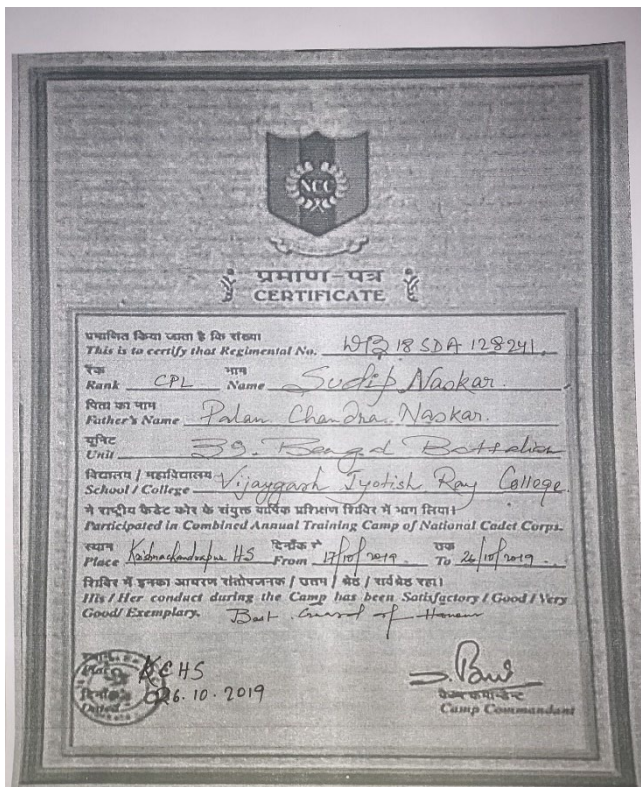 NCC
प्रमाण-पत्र
CERTIFICATE
प्रमाणित किया जाता है कि संख्या
This is to certify that Regimental No. WB 18 SDA 128241.
रैंक नाम
Rank CPL Name Sudip Naskar.
पिता का नाम
Father's Name Palan Chandra Naskar.
यूनिट
Unit 39. Bengal Battalion
विद्यालय / महाविद्यालय
School / College Vijaygarh Jyotish Ray College.
ने राष्ट्रीय कैडेट कोर के संयुक्त वार्षिक प्रशिक्षण शिविर में भाग लिया।
Participated in Combined Annual Training Camp of National Cadet Corps.
स्थान दिनाँक से तक
Place Krishnachandrapur HS From 17/10/2019 To 26/10/2019.
शिविर में इनका आचरण संतोषजनक / उत्तम / श्रेष्ठ / सर्वश्रेष्ठ रहा।
His / Her conduct during the Camp has been Satisfactory / Good / Very
Good/ Exemplary. Best Guard of Honour
स्थान
Place KCHS
दिनाँक
Dated 26.10.2019
कैम्प कमान्डेन्ट
Camp Commandant